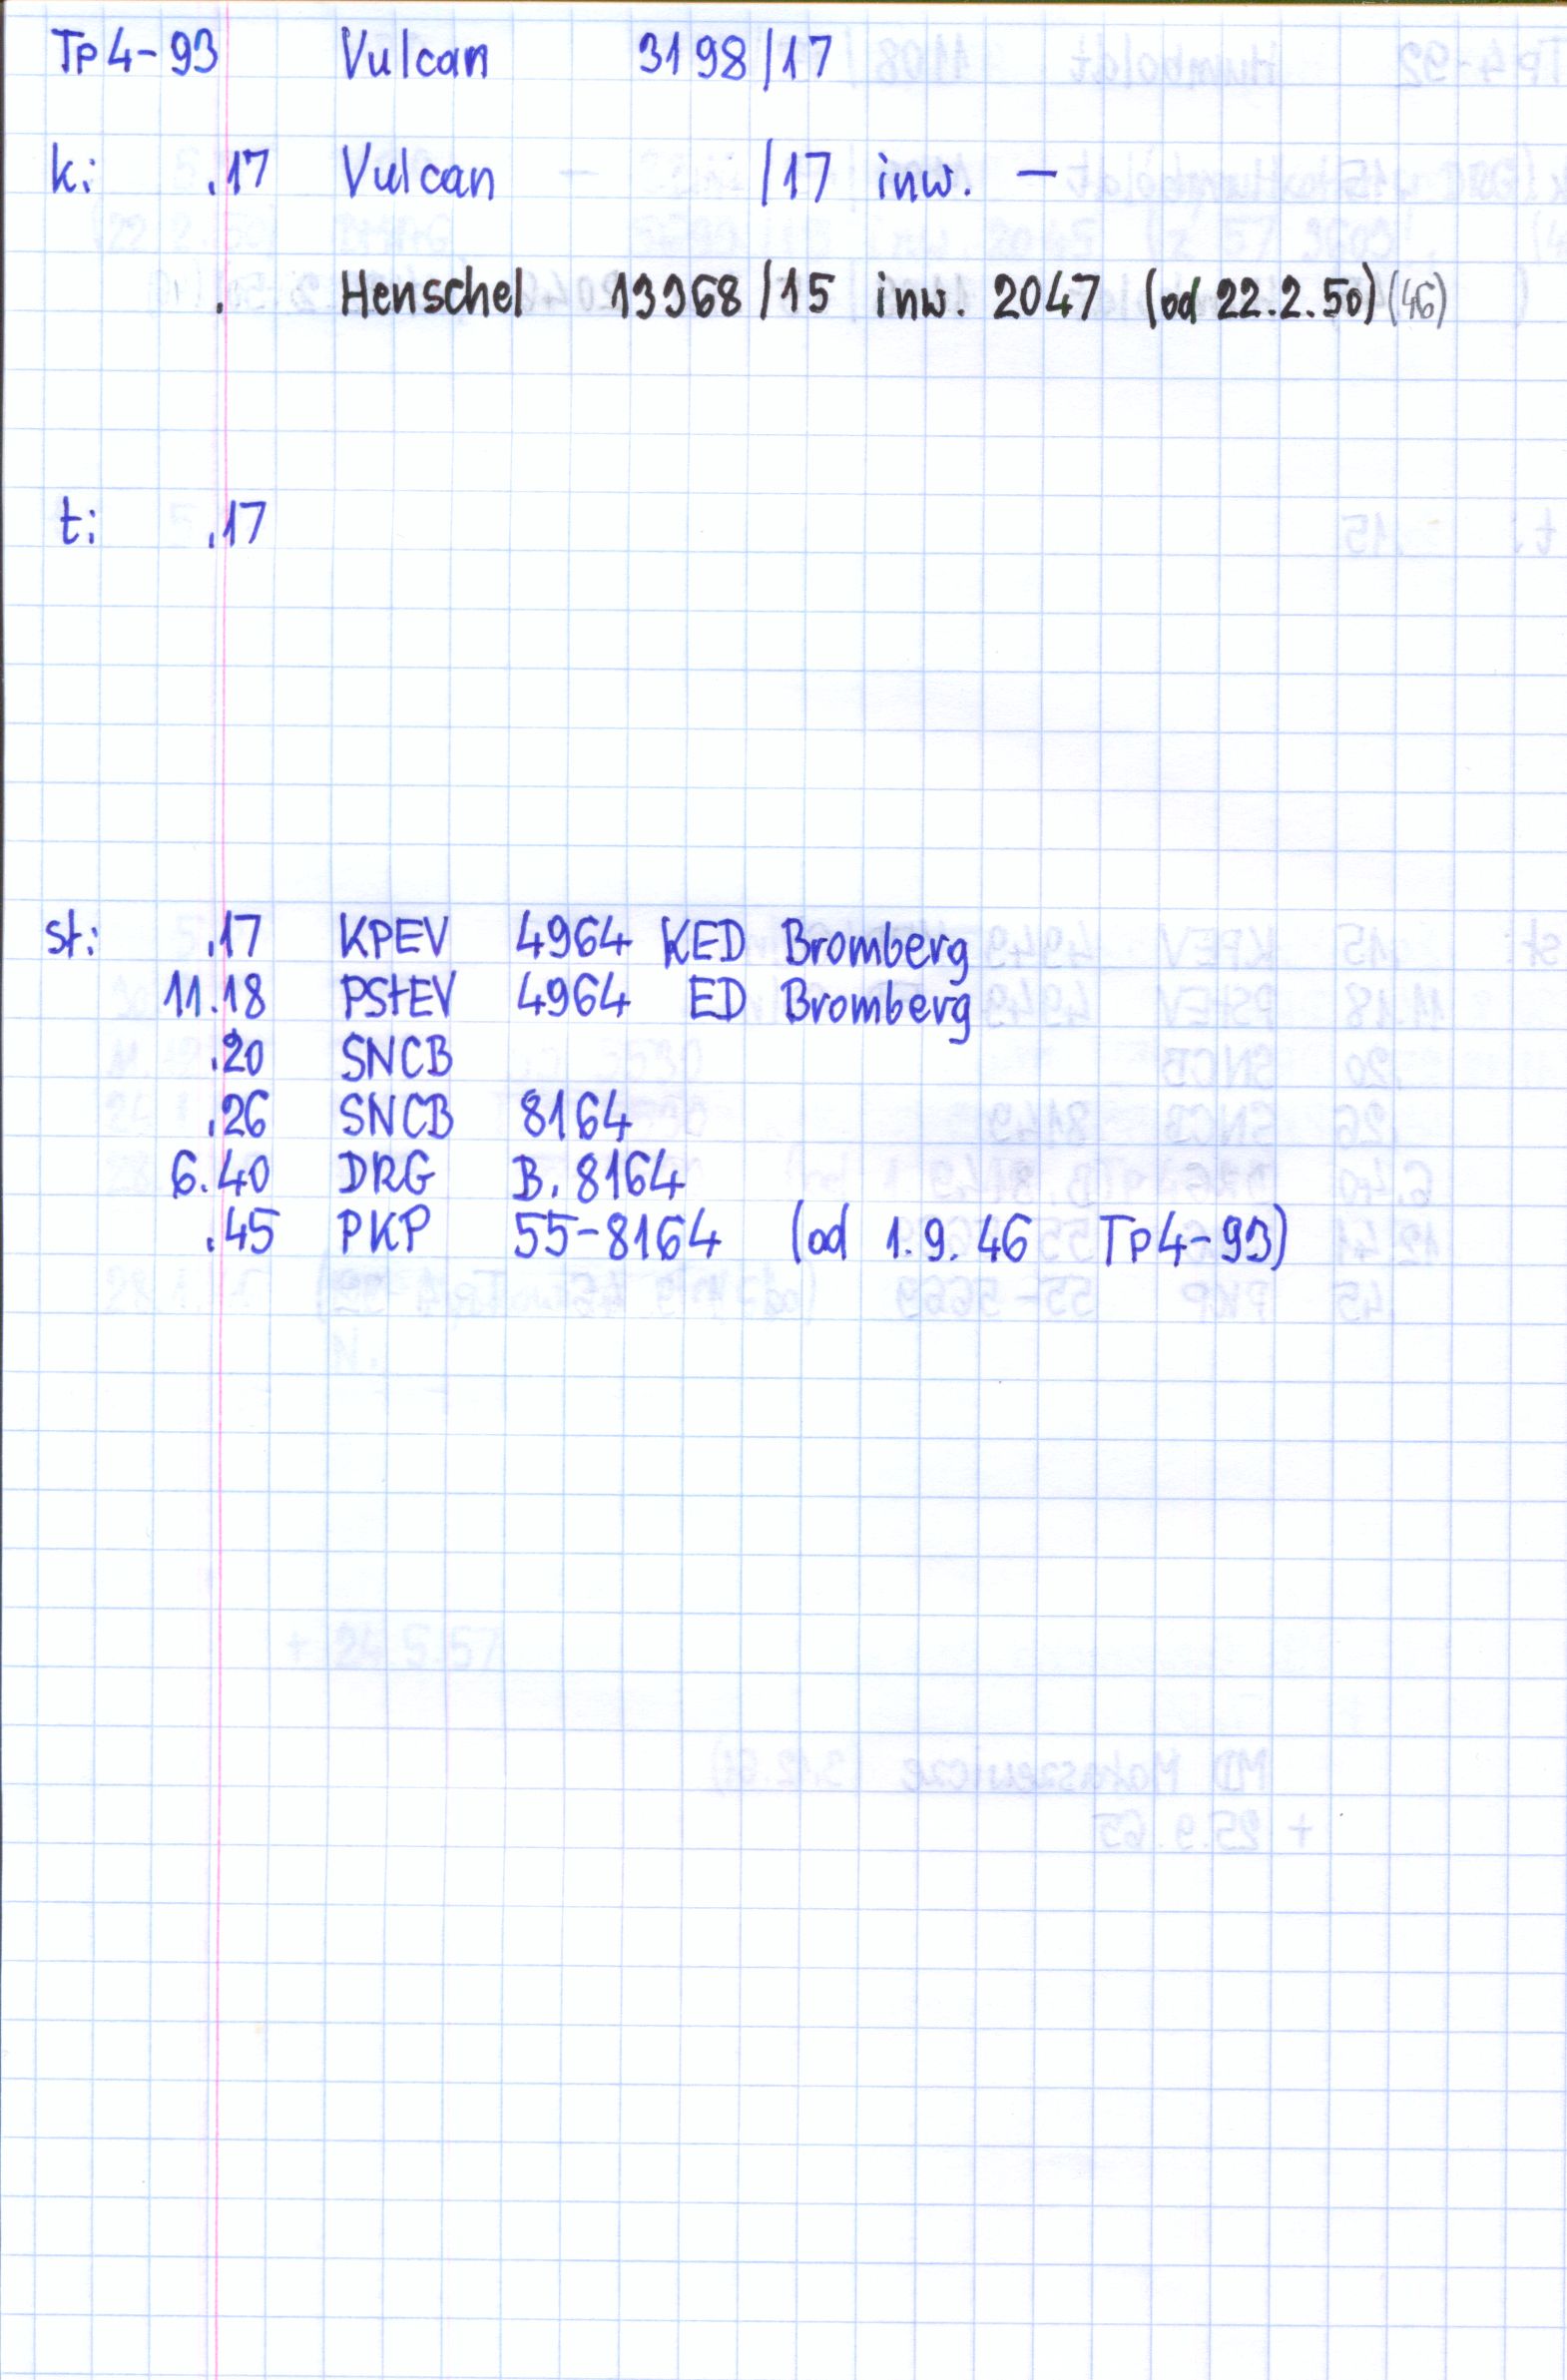 Tp4-93 Vulcan 3198/17
k: .17 Vulcan /17 inw. —
. Henschel 13368/15 inw. 2047 (od 22.2.50) (46)
t: .17
st: .17 KPEV 4964 KED Bromberg
11.18 PStEV 4964 ED Bromberg
.20 SNCB
.26 SNCB 8164
6.40 DRG B. 8164
.45 PKP 55-8164 (od 1.9.46 Tp4-93)
+ 24.5.57